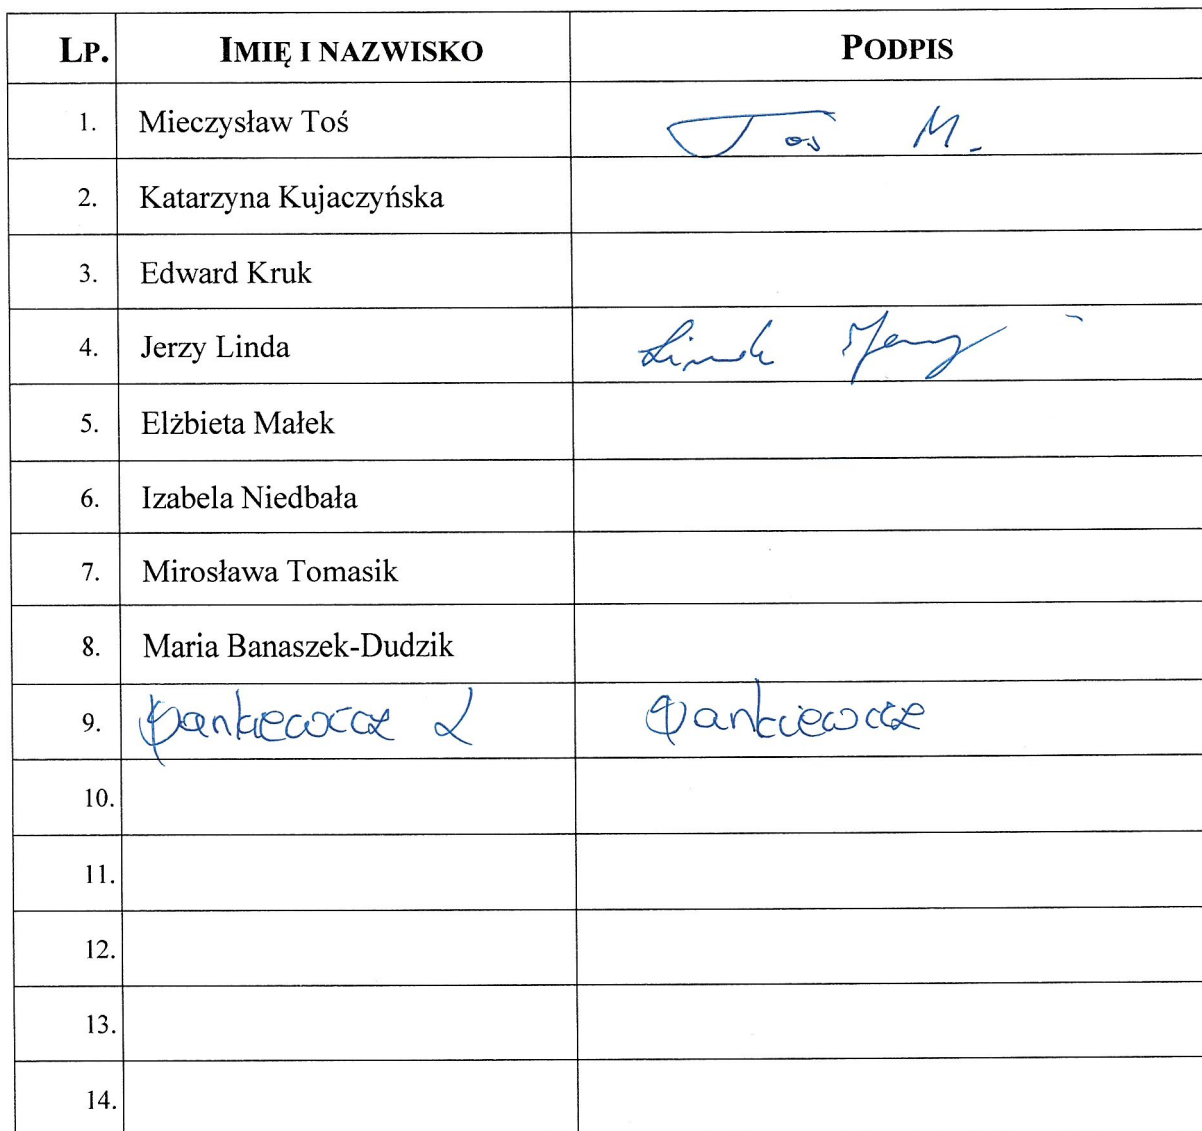 LP. IMIĘ I NAZWISKO PODPIS
1. Mieczysław Toś Toś M.
2. Katarzyna Kujaczyńska
3. Edward Kruk
4. Jerzy Linda Linda Jerzy
5. Elżbieta Małek
6. Izabela Niedbała
7. Mirosława Tomasik
8. Maria Banaszek-Dudzik
9. Pankiewicz L Pankiewicz
10.
11.
12.
13.
14.